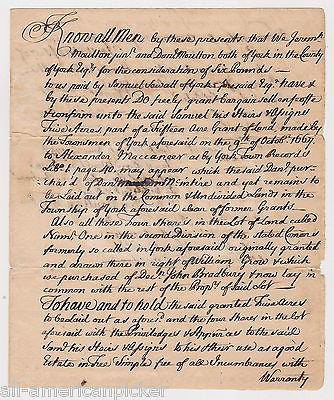 Know all Men by these presents that We Jeremh
Moulton junr and Danl Moulton both of york in the County
of york Esqrs for the consideration of Six Pounds
to us paid by Samuel Sewall of York aforesaid Esqr have &
by these presents Do freely grant bargain sell enfeoffe
& confirm unto the said Samuel his Heirs & Assigns
Five Acres part of a Fifteen Acre Grant of Land made by
the Townsmen of York aforesaid on the 9th of Octobr 1667
to Alexander Maccaneer as by York Town Records
Libo 1 page 40. may appear which the said Danl purchas'd
of Danl intire and yet remains to
be Laid out on the Common & Undivided Lands in the
Township of York aforesaid clear of former Grants.
Also all those four Shares in the Lot of Land called
Numbr One in the Second Division of the Stated Comons
formerly so called in York aforesaid originally granted
and drawn there in right of William Grow & which
we purchased of Deacn John Bradbury & now lay in
common with the rest of the Proprs of said Lot
To have and to hold the said granted Five Acres
to be laid out as afores'd and the four Shares in the Lot
aforesaid with the Priviledges & Appurces to the said
Saml his Heirs & Assigns to their use as a good
Estate in Fee Simple free of all Incumbrances with
Warranty
all-americanpicker